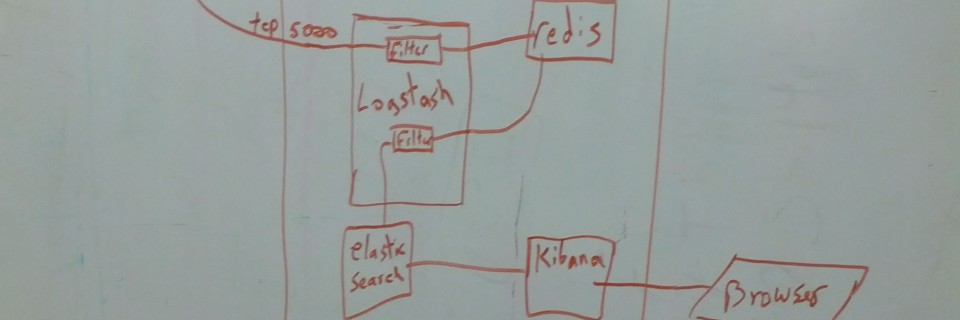 tcp 5000
Filter
redis
Logstash
Filter
elastic
search
Kibana
Browser